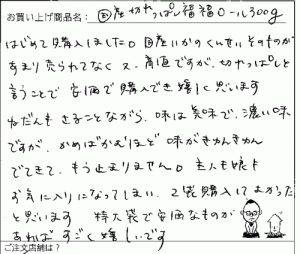 お買い上げ商品名: 国産切やっぱし福福ロール300g
はじめて購入しました。国産いかのくんせいそのものが
あまり売られてなく又、高値ですが、切やっぱしと
言うことで安価で購入でき嬉しく思います
ねだんもさることながら、味は美味で、濃い味
ですが、かめばかむほど味がきゅんきゅん
でてきて、もう止まりません。主人も娘も
お気に入りになってしまい、2袋購入してよかった
と思います 特大袋で安価なものが
あればすごく嬉しいです
ご注文店舗は?